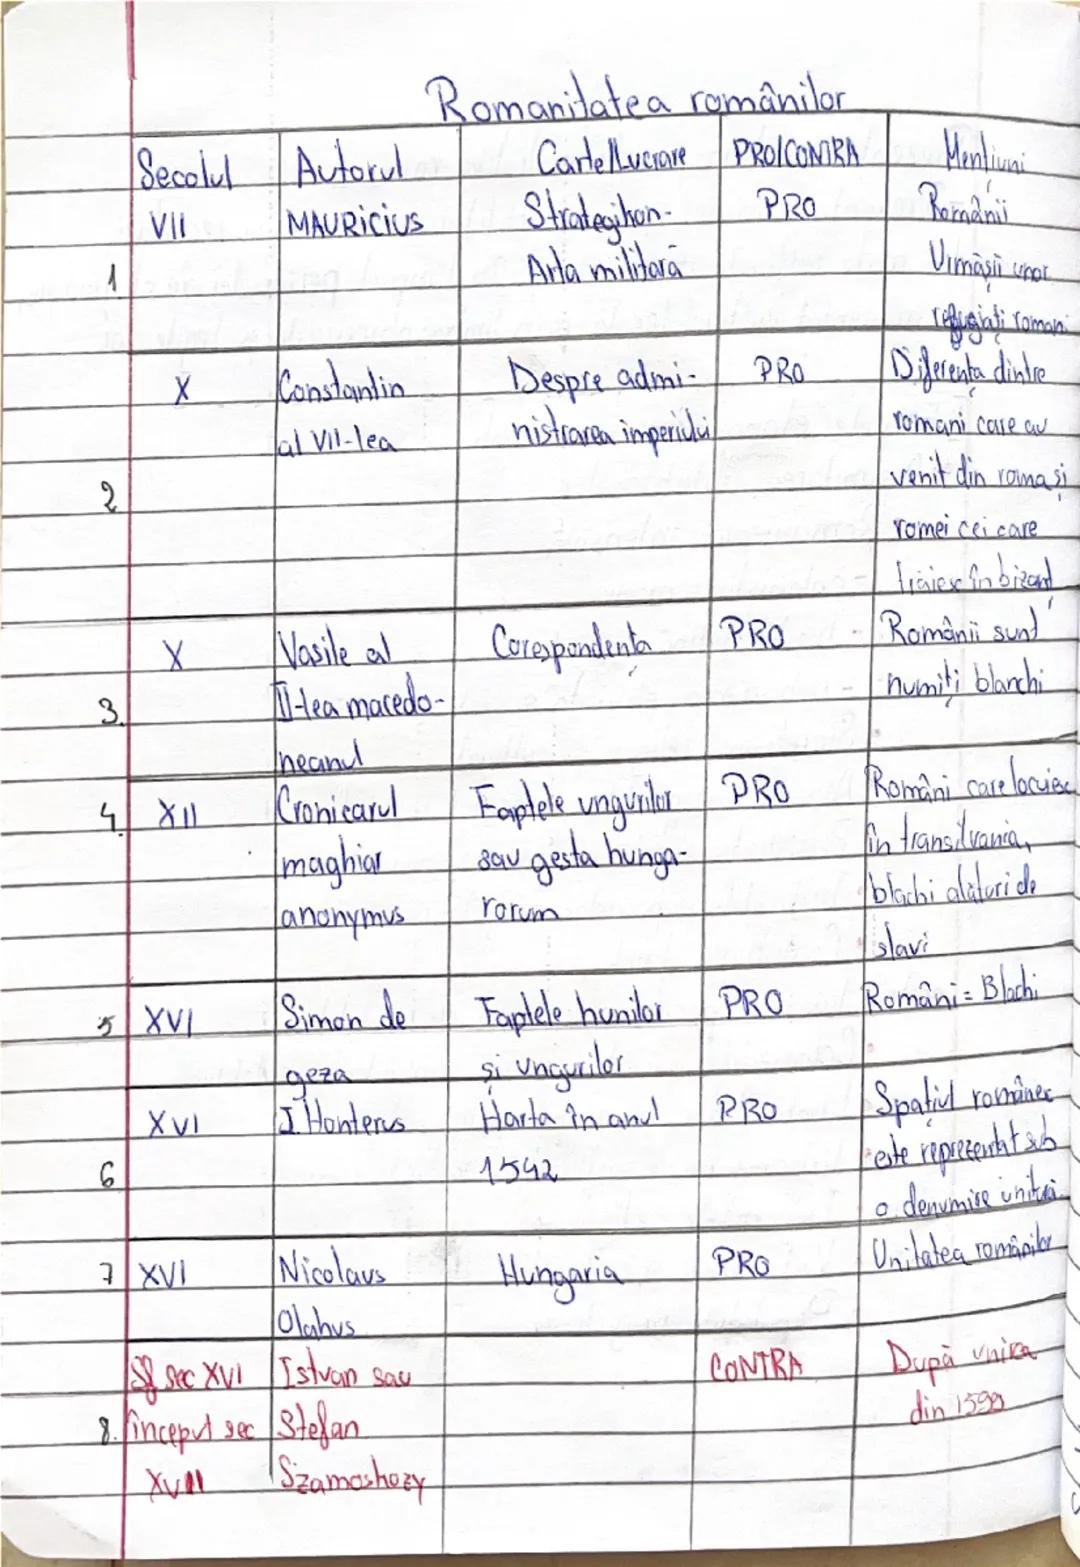 Romanitatea românilor
Secolul Autorul Carte/Lucrare PRO/CONTRA Mențiuni
VII MAURiCiUS Strategihon- PRO Românii
1 Arta militară Urmășii unor
refugiați romani
X Constantin Despre admi- PRO Diferența dintre
al VII-lea nistrarea imperiului romani care au
2 venit din roma și
romei cei care
trăiesc în bizanț
X Vasile al Corespondența PRO Românii sunt
3. II-lea macedo- numiți blanchi
neanul
4. XII Cronicarul Faptele ungurilor PRO Români care locuiesc
maghiar sau gesta hunga- în transilvania,
anonymus rorum blachi alături de
slavi
5 XVI Simon de Faptele hunilor PRO Români = Blachi
geza și ungurilor
XVI J. Honterus Harta în anul PRO Spațiul românesc
6 1542 este reprezentat sub
o denumire
7 XVI Nicolaus Hungaria PRO Unitatea românilor
Olahus
Sf sec XVI Istvan sau CONTRA După unirea
8. început sec Stefan din 1599
XVII Szamoshozy